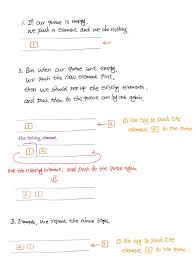 1. If our queue is empty,
we push a element and we do nothing
1
2. But when our queue isn't empty,
we push the new element first,
then we should pop up the existing elements,
and push them to the queue one by one again.
① Use try to push the
element 2 to the queue
1 2
the existing element
1 2
pop the existing element, and push to the queue again
2 1
3. Example, we repeat the above steps.
① Use try to push the
2 1
element 3 to the queue